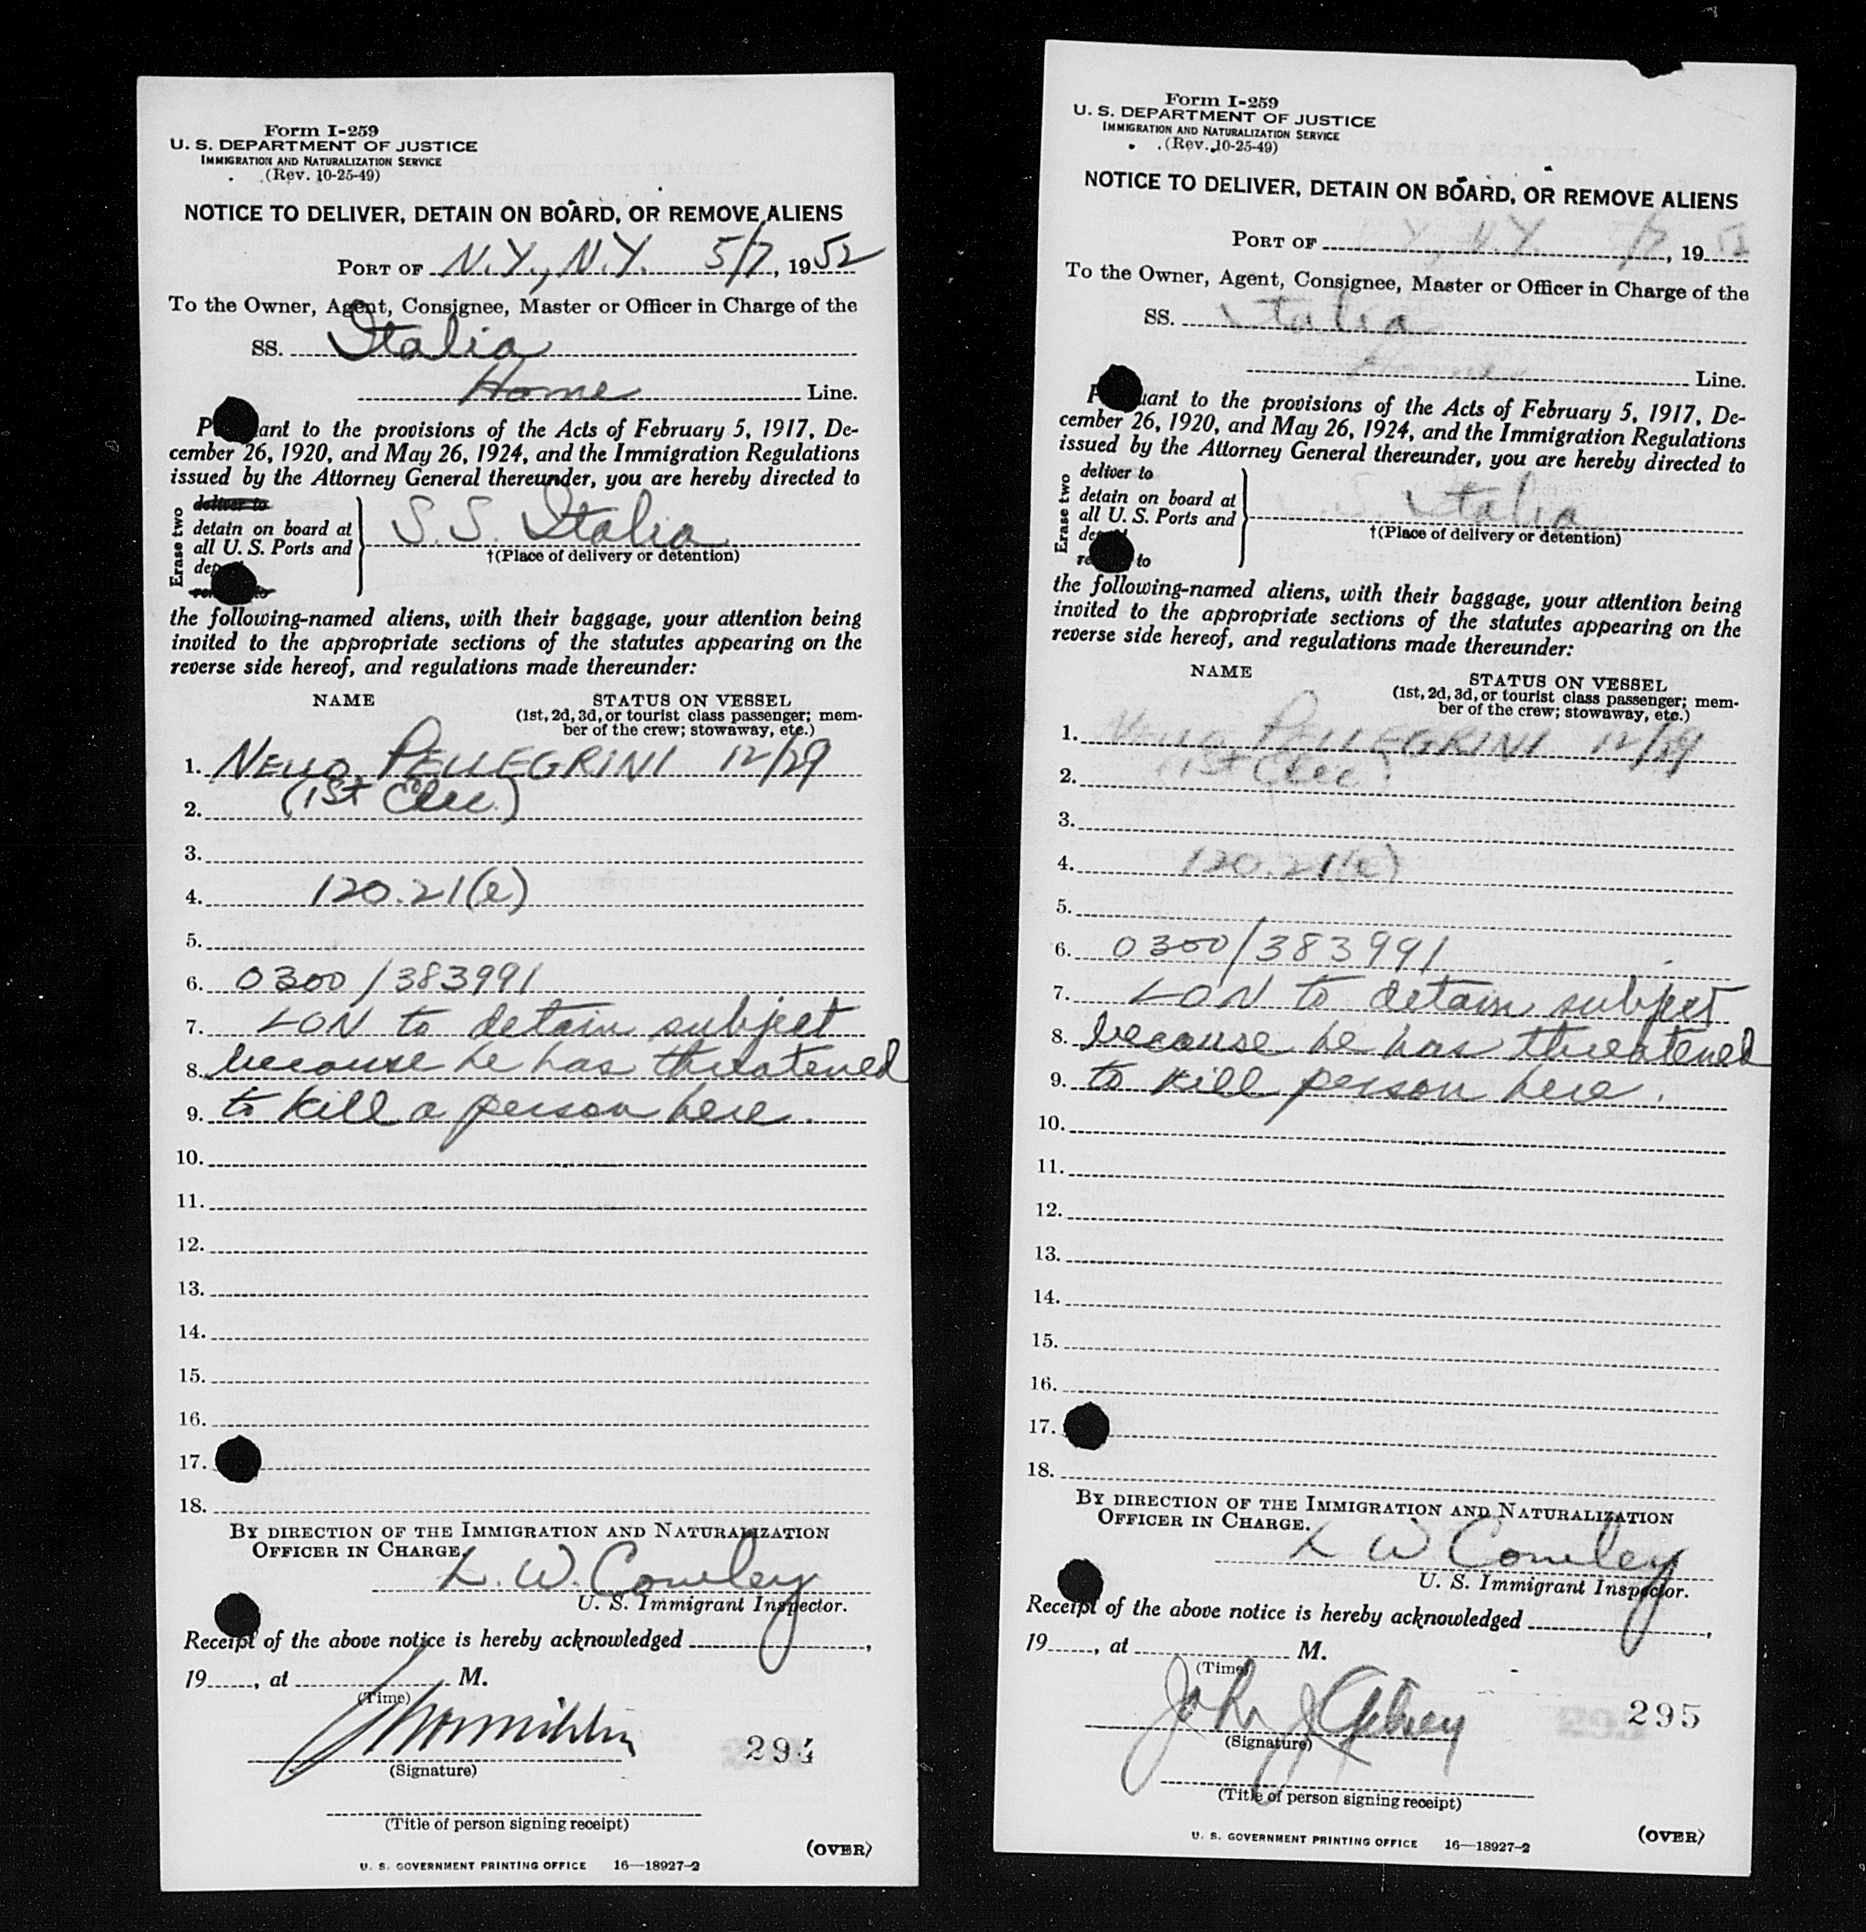 Form I-259
U. S. DEPARTMENT OF JUSTICE
IMMIGRATION AND NATURALIZATION SERVICE
(Rev. 10-25-49)
NOTICE TO DELIVER, DETAIN ON BOARD, OR REMOVE ALIENS
PORT OF N.Y., N.Y. 5/7, 1952
To the Owner, Agent, Consignee, Master or Officer in Charge of the
SS. Italia
Home Line.
P ant to the provisions of the Acts of February 5, 1917, De-
cember 26, 1920, and May 26, 1924, and the Immigration Regulations
issued by the Attorney General thereunder, you are hereby directed to
Erase two
deliver to
detain on board at
all U. S. Ports and
dep
to
S.S. Italia
†(Place of delivery or detention)
the following-named aliens, with their baggage, your attention being
invited to the appropriate sections of the statutes appearing on the
reverse side hereof, and regulations made thereunder:
NAME STATUS ON VESSEL
(1st, 2d, 3d, or tourist class passenger; mem-
ber of the crew; stowaway, etc.)
1. NELLO PELLEGRINI 12/29
2. (1st Elec.)
3.
4. 120.21(e)
5.
6. 0300/383991
7. LON to detain subject
8. because he has threatened
9. to kill a person here.
10.
11.
12.
13.
14.
15.
16.
17.
18.
BY DIRECTION OF THE IMMIGRATION AND NATURALIZATION
OFFICER IN CHARGE.
L. W. Cowley
U. S. Immigrant Inspector.
Receipt of the above notice is hereby acknowledged ,
19 , at M.
(Time)
(Signature)
294
(Title of person signing receipt)
(OVER)
U. S. GOVERNMENT PRINTING OFFICE 16—18927-2
Form I-259
U. S. DEPARTMENT OF JUSTICE
IMMIGRATION AND NATURALIZATION SERVICE
(Rev. 10-25-49)
NOTICE TO DELIVER, DETAIN ON BOARD, OR REMOVE ALIENS
PORT OF Y., N.Y. /7, 1952
To the Owner, Agent, Consignee, Master or Officer in Charge of the
SS. Italia
Home Line.
P uant to the provisions of the Acts of February 5, 1917, De-
cember 26, 1920, and May 26, 1924, and the Immigration Regulations
issued by the Attorney General thereunder, you are hereby directed to
Erase two
deliver to
detain on board at
all U. S. Ports and
de
re to
S.S. Italia
†(Place of delivery or detention)
the following-named aliens, with their baggage, your attention being
invited to the appropriate sections of the statutes appearing on the
reverse side hereof, and regulations made thereunder:
NAME STATUS ON VESSEL
(1st, 2d, 3d, or tourist class passenger; mem-
ber of the crew; stowaway, etc.)
1. NELLO PELLEGRINI 12/29
2. (1st Elec.)
3.
4. 120.21(e)
5.
6. 0300/383991
7. LON to detain subject
8. because he has threatened
9. to kill person here.
10.
11.
12.
13.
14.
15.
16.
17.
18.
BY DIRECTION OF THE IMMIGRATION AND NATURALIZATION
OFFICER IN CHARGE.
L W Cowley
U. S. Immigrant Inspector.
Receipt of the above notice is hereby acknowledged ,
19 , at M.
(Time)
John J
(Signature)
295
(Title of person signing receipt)
(OVER)
U. S. GOVERNMENT PRINTING OFFICE 16—18927-2